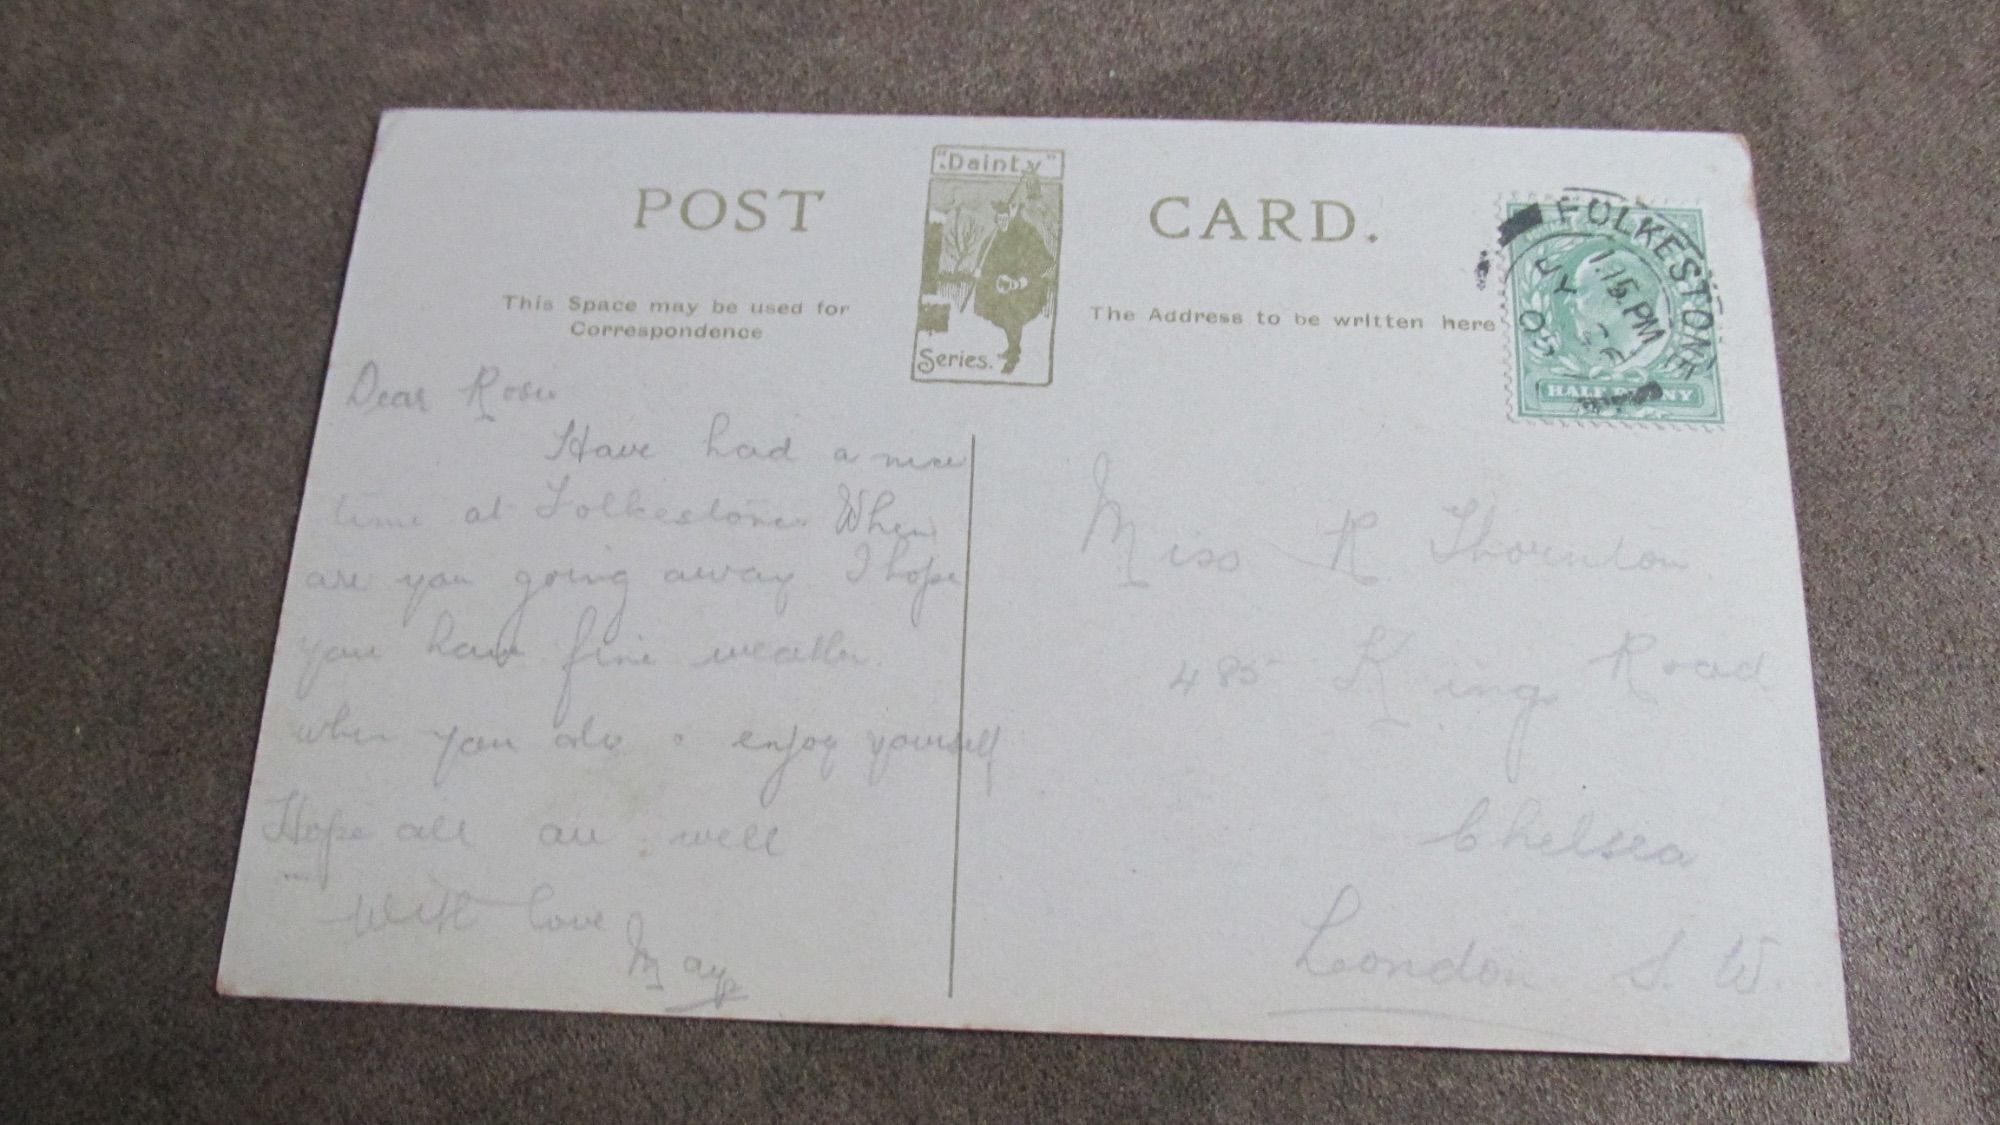 POST CARD.
"Dainty"
Series.
This Space may be used for
Correspondence
The Address to be written here
FOLKESTONE
1.15 PM
HALFPENNY
Dear Rosie
Have had a nice
time at Folkestone When
are you going away I hope
you have fine weather
when you do enjoy yourself
Hope all are well
With love
May
Miss R Thornton
485 King Road
Chelsea
London S. W.